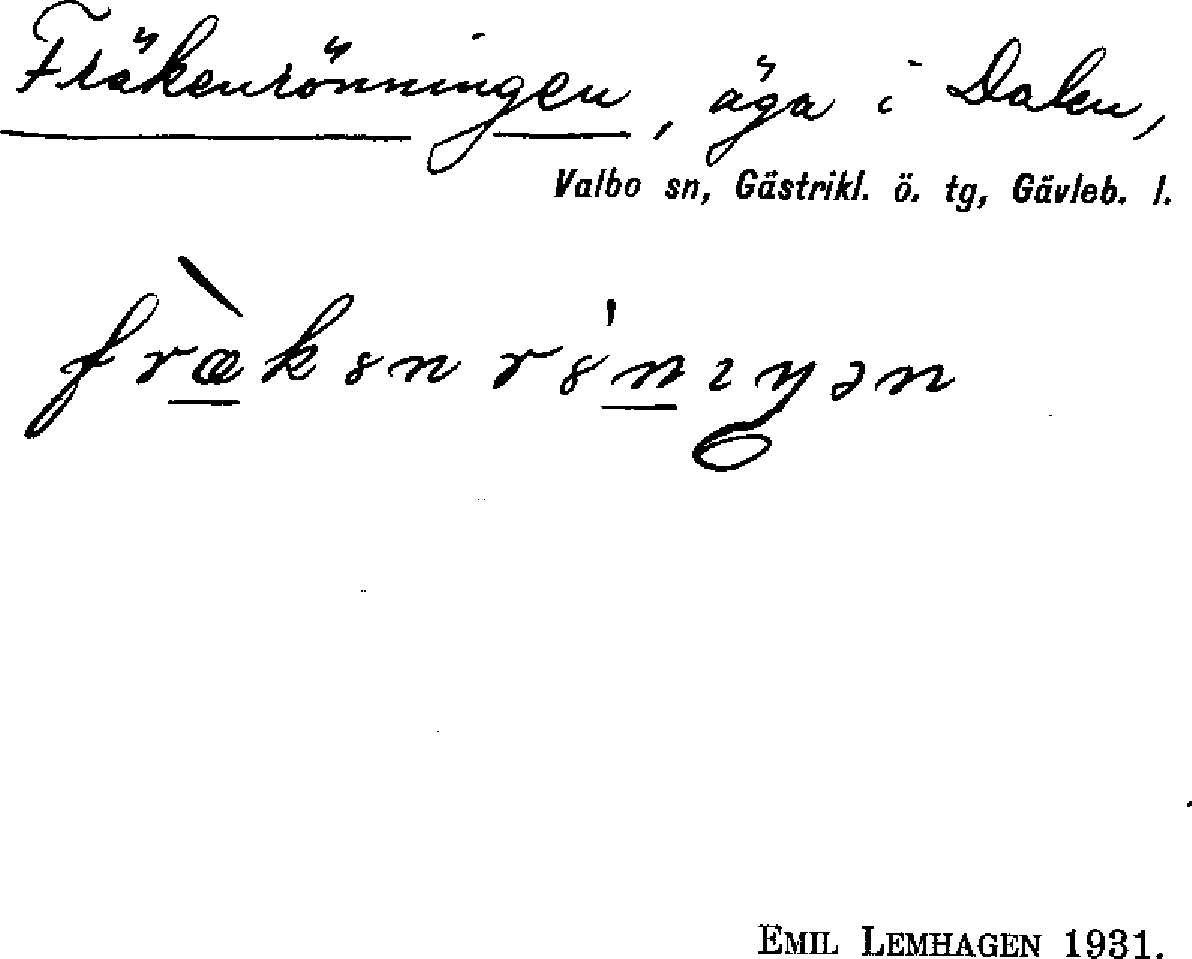 Fräkenrönningen, äga i Dalen,
Valbo sn, Gästrikl. ö. tg, Gävleb. l.
fræ̀kən rönıŋən
EMIL LEMHAGEN 1931.